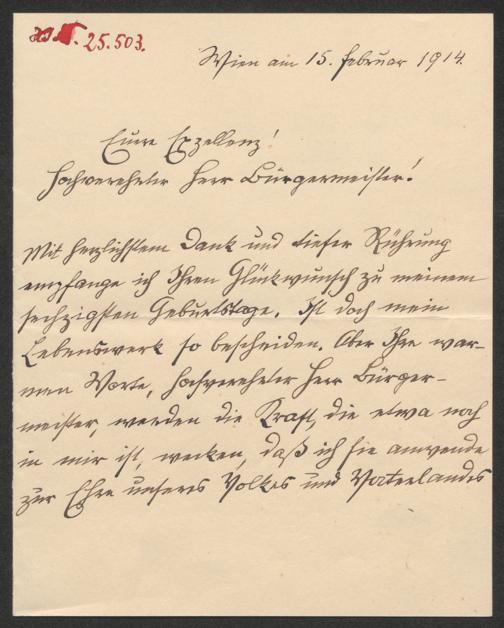 25.503.
Wien am 15. Februar 1914.
Eure Exzellenz!
Hochverehrter Herr Bürgermeister!
Mit herzlichstem Dank und tiefer Rührung
empfange ich Ihren Glückwunsch zu meinem
sechzigsten Geburtstage. Ist doch mein
Lebenswerk so bescheiden. Aber Ihre war-
men Worte, hochverehrter Herr Bürger-
meister, werden die Kraft, die etwa noch
in mir ist, wecken, daß ich sie anwende
zur Ehre unseres Volkes und Vaterlandes